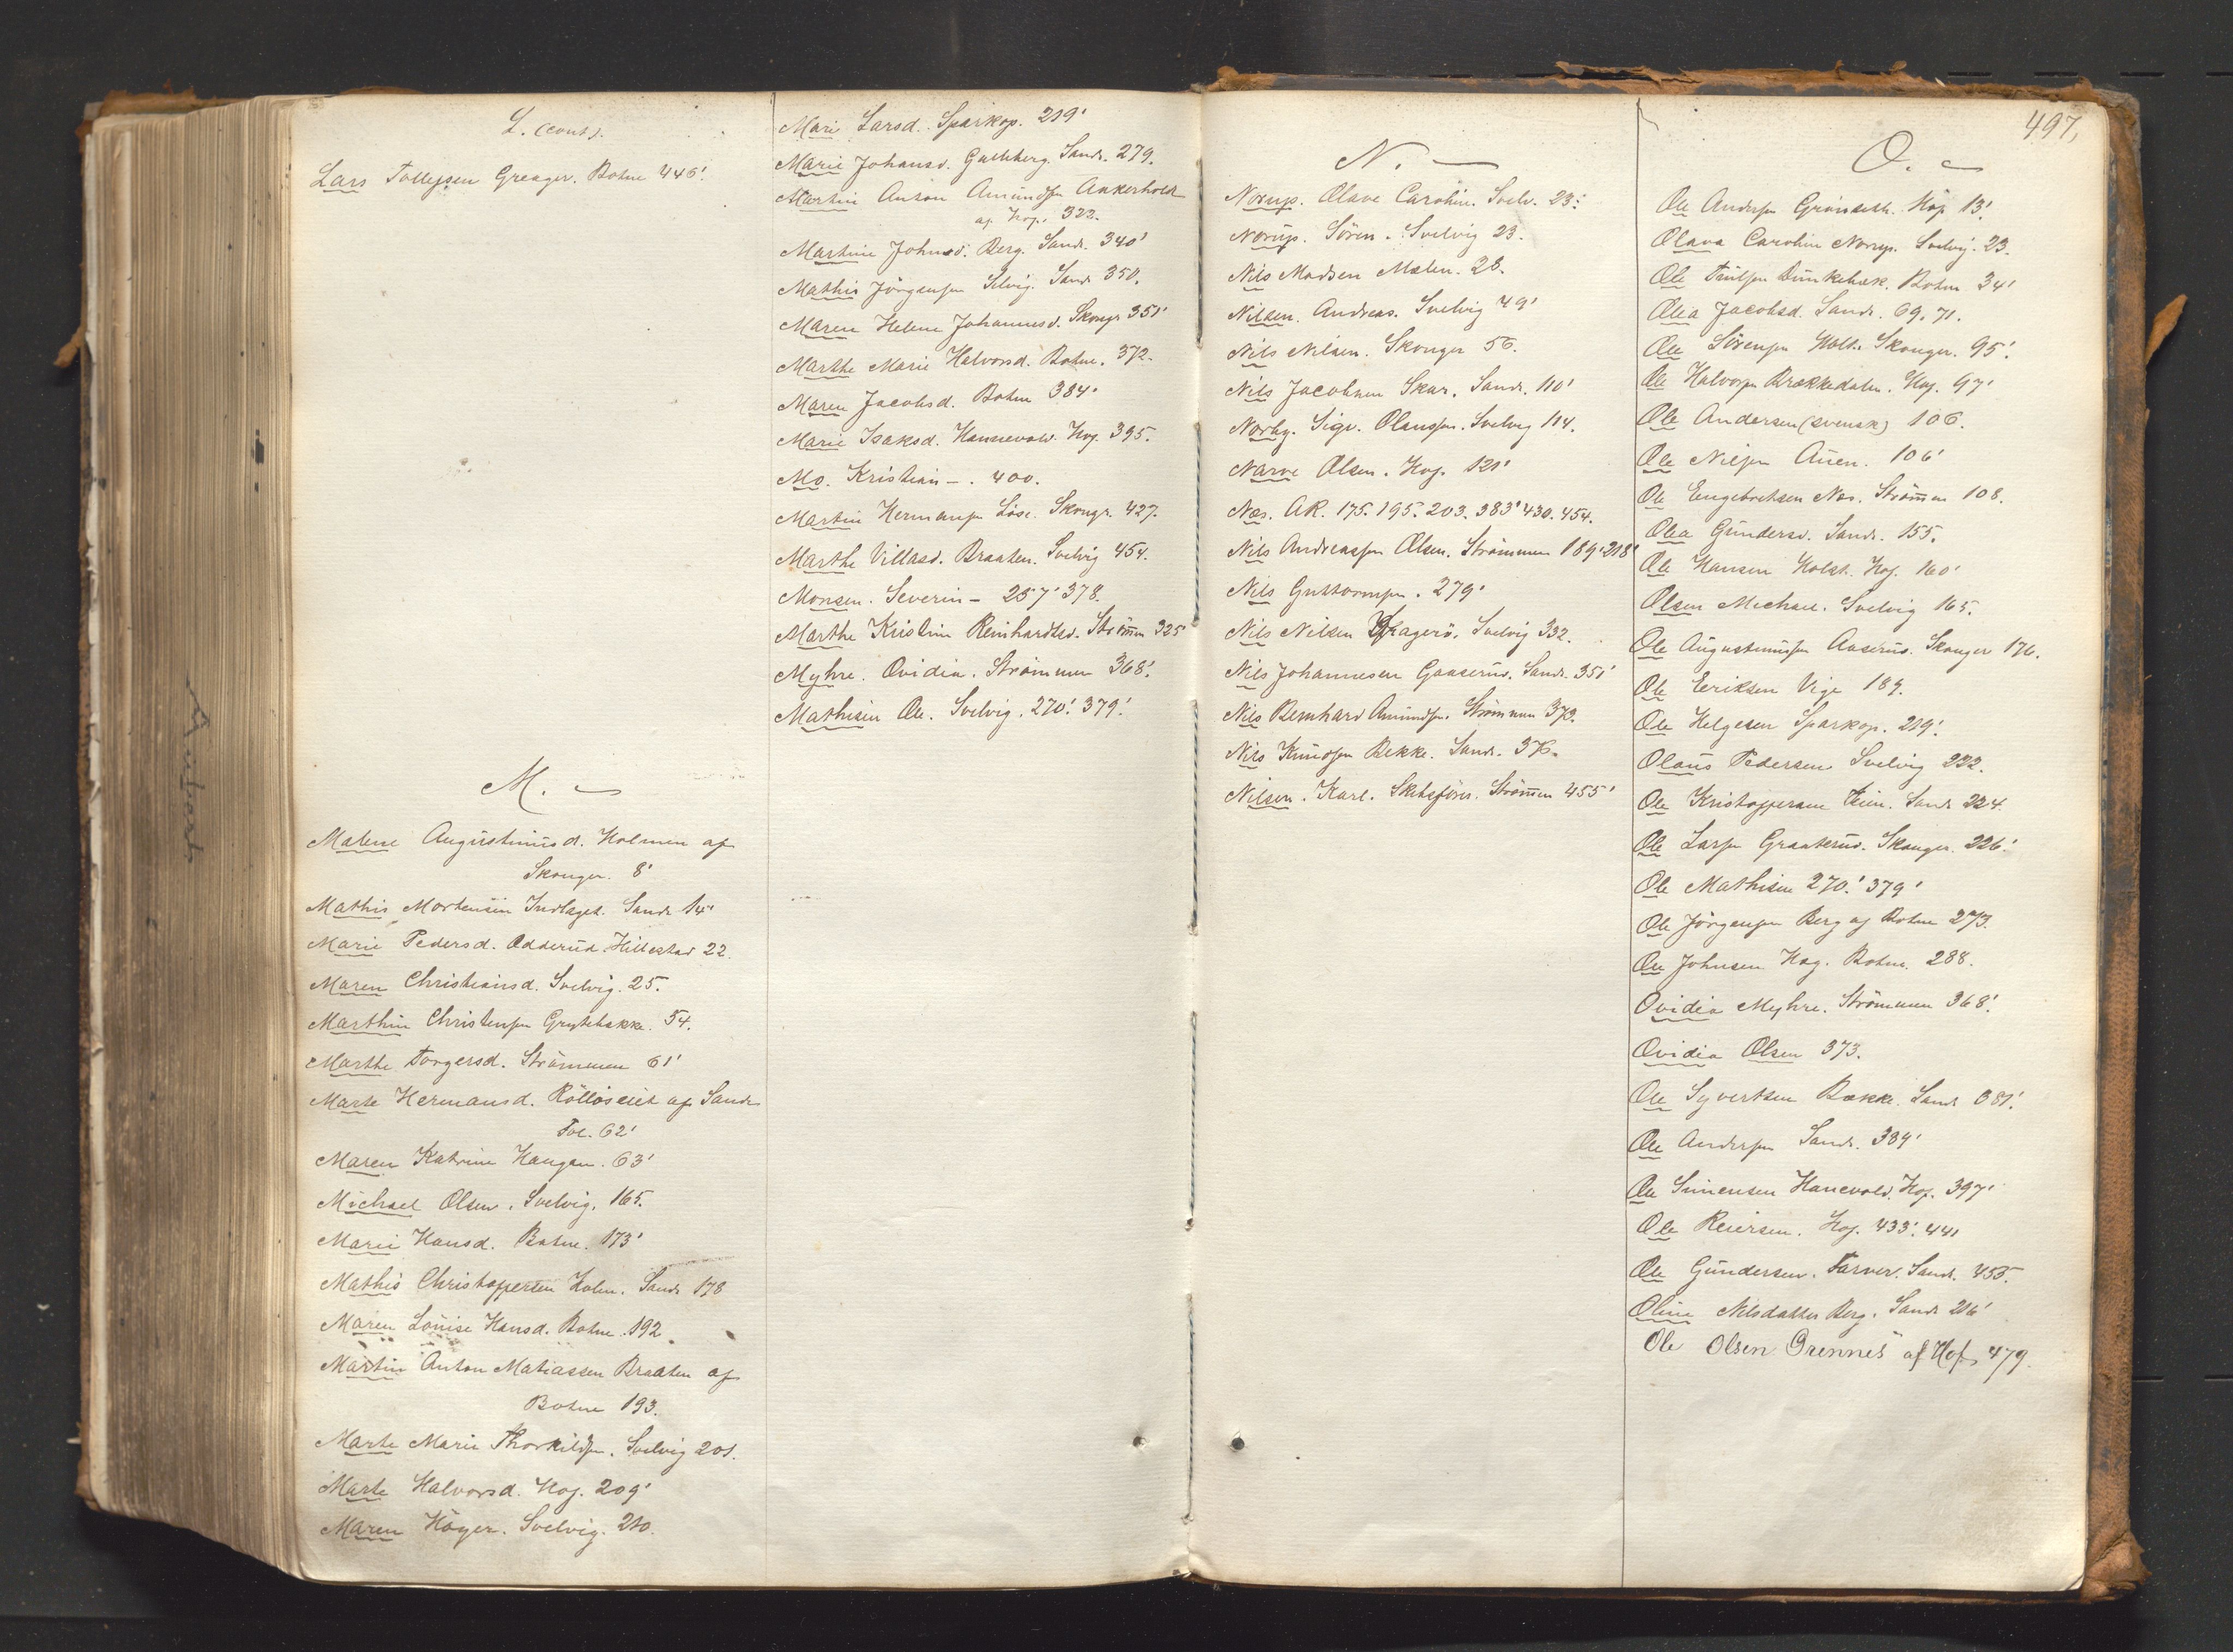 L. (cont).
Lars Tollefsen Greager. Botne 446'.
M. —
Malene Augustinusd. Holmen af
Skouger. 8'
Mathis Mortensen Indlaget. Sande 14'
Marie Pedersd. Odderud. Hillestad 22.
Maren Christiansd. Svelvig. 25.
Marthin Christensen Grytebakke. 54.
Marthe Torgersd. Strömmen 61'
Marte Hermansd. af Sande
Fol. 62'
Maren Katrine Haugen. 63'
Michael Olsen. Svelvig. 165.
Marie Hansd. Botne. 173'
Mathis Christoffersen Holm. Sande 178
Maren Louise Hansd. Botne. 192
Martin Anton Matiassen Braaten af
Botne 193.
Marte Marie Thorkildsen. Svelvig 201.
Marte Halvorsd. Hof. 209'
Maren Höyer. Svelvig. 210.
Mari Larsd. Sparkop. 219'
Marie Johansd. Gulliberg. Sande. 279.
Martin Anton Amundsen Ankerholt
af Hof. 322.
Martine Johnsd. Berg. Sande. 340'
Mathis Jörgensen Selvig. Sande 350.
Maren Helene Johannesd. Skougr 351'
Marthe Marie Halvorsd. Botne. 372.
Maren Jacobsd. Botne 384'
Marie Isaksd. Hannevold. Hof. 395.
Mo. Kristian —. 400.
Martin Hermansen Löse. Skougr. 427.
Marthe Villasd. Braaten. Svelvig 454.
Monsen. Severin — 257' 378.
Marthe Kristine Reinhardtsd. Strömmen 325'
Myhre. Ovidia. Strömmen 368'.
Mathisen Ole. Svelvig. 270'. 379'.
497,
N. —
Norup. Olave Caroline. Svelv. 23.
Norup. Sören. Svelvig 23.
Nils Madsen Malen. 28.
Nilsen. Andreas. Svelvig 49'
Nils Nilsen. Skouger 56.
Nils Jacobsen Skar. Sande. 110'
Norby. Sigv. Olaussen. Svelvig 114.
Narve Olsen. Hof. 121'
Næs. AR. 175. 195. 203. 383' 430. 454.
Nils Andreassen Olsen. Strömmen 189' 218'
Nils Guttormsen. 279'
Nils Nilsen Kragerö. Svelvig 332.
Nils Johannesen Gaaserud. Sande. 351'
Nils Bernhard Amundsen. Strömmen 373.
Nils Knudsen Bekke. Sande. 376.
Nilsen. Karl. Skibsförer. Strömmen 455'
O. —
Ole Andersen Grönseth. Hof 13'.
Olava Caroline Norup. Svelvig. 23.
Ole Paulsen Dunkebæk. Botne 34'
Olea Jacobsd. Sande. 69. 71.
Ole Sörensen Holt. Skouger. 95'.
Ole Halvorsen Brækkedalen. Hof. 97'
Ole Andersen (svensk) 106.
Ole Nilsen Auen. 106'
Ole Engebretsen Næs. Strömmen 108.
Olea Gundersd. Sande. 155.
Ole Hansen Holst. Hof. 160'
Olsen Michael. Svelvig 165.
Ole Augustinussen Aaserud. Skouger 176.
Ole Eriksen Vige 189.
Ole Helgesen Sparkop. 219'.
Olaus Pedersen Svelvig 222.
Ole Kristoffersen Teien. Sande 224.
Ole Larsen Graaterud. Skouger. 226'.
Ole Mathisen 270'. 379'
Ole Jörgensen Berg af Botne 273.
Ole Johnsen Hag. Botne. 288.
Ovidia Myhre. Strömmen 368'.
Ovidia Olsen 373.
Ole Syvertsen Bække. Sande 381'.
Ole Andersen Sande. 389'
Ole Simensen Hanevold. Hof. 397'
Ole Reiersen. Hof. 433'. 441
Ole Gundersen. Farver. Sande. 455.
Oline Nilsdatter Berg. Sande 216'
Ole Olsen Grennes af Hof, 479.